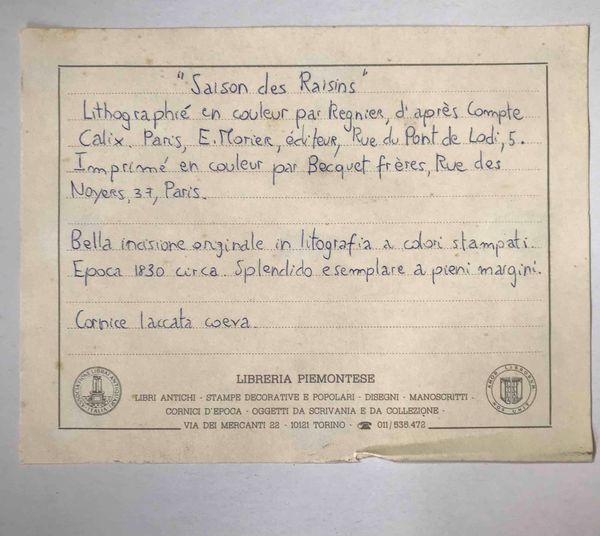 "Saison des Raisins"
Lithographié en couleur par Regnier, d'après Compte
Calix. Paris, E. Morier, éditeur, Rue du Pont de Lodi, 5.
Imprimé en couleur par Becquet frères, Rue des
Noyers, 37, Paris.
Bella incisione originale in litografia a colori stampati.
Epoca 1830 circa. Splendido esemplare a pieni margini.
Cornice laccata coeva.
LIBRERIA PIEMONTESE
LIBRI ANTICHI - STAMPE DECORATIVE E POPOLARI - DISEGNI - MANOSCRITTI -
CORNICI D'EPOCA - OGGETTI DA SCRIVANIA E DA COLLEZIONE -
VIA DEI MERCANTI 22 - 10121 TORINO - ☎ 011/535.472
ASSOCIAZIONE LIBRAI ANTIQUARI
ITALIA
AMOR LIBRORUM
NOS UNIT